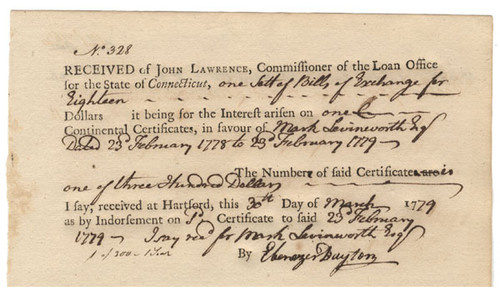 No. 328
RECEIVED of JOHN LAWRENCE, Commissioner of the Loan Office
for the State of Connecticut, one Sett of Bills of Exchange for
Eighteen
Dollars it being for the Interest arisen on one
Continental Certificates, in favour of Mark Levinworth Esqr
Dated 23d February 1778 to 23d February 1779
The Number of said Certificate is
one of three Hundred Dollars
I say, received at Hartford, this 30th Day of March 1779
as by Indorsement on sd Certificate to said 23d February
1779 I say recd for Mark Levinworth Esqr
By Ebenezer Dayton